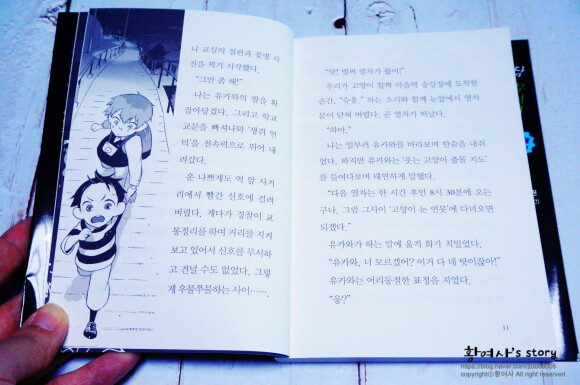 나 교실의 칠판과 꽃병 사
진을 찍기 시작했다.
"그만 좀 해!"
나는 유카와의 팔을 확
잡아당겼다. 그리고 학교
교문을 빠져나와 '왕귀 언
덕'을 전속력으로 뛰어 내
려갔다.
운 나쁘게도 역 앞 사거
리에서 빨간 신호에 걸려
버렸다. 게다가 경찰이 교
통정리를 하며 거리를 지켜
보고 있어서 신호를 무시하
고 건널 수도 없었다. 그렇
게 우물쭈물하는 사이…….
"앗! 벌써 열차가 왔어!"
우리가 고양이 할짝 마을역 승강장에 도착한
순간, "슈웅." 하는 소리와 함께 눈앞에서 열차
문이 닫혀 버렸다. 곧 열차가 떠났다.
"하아."
나는 일부러 유카와를 바라보며 한숨을 내쉬
었다. 하지만 유카와는 '웃는 고양이 출몰 지도'
를 들여다보며 태연하게 말했다.
"다음 열차는 한 시간 후인 8시 30분에 오는
구나. 그럼 그사이 '고양이 눈 연못'에 다녀오면
되겠다."
유카와가 하는 말에 울컥 화가 치밀었다.
"유카와, 너 모르겠어? 이거 다 네 탓이잖아!"
유카와는 어리둥절한 표정을 지었다.
"응?"
11
황여사's story
https://blog.naver.com/zoodol005
copyrightⓒ황여사 All right reserved